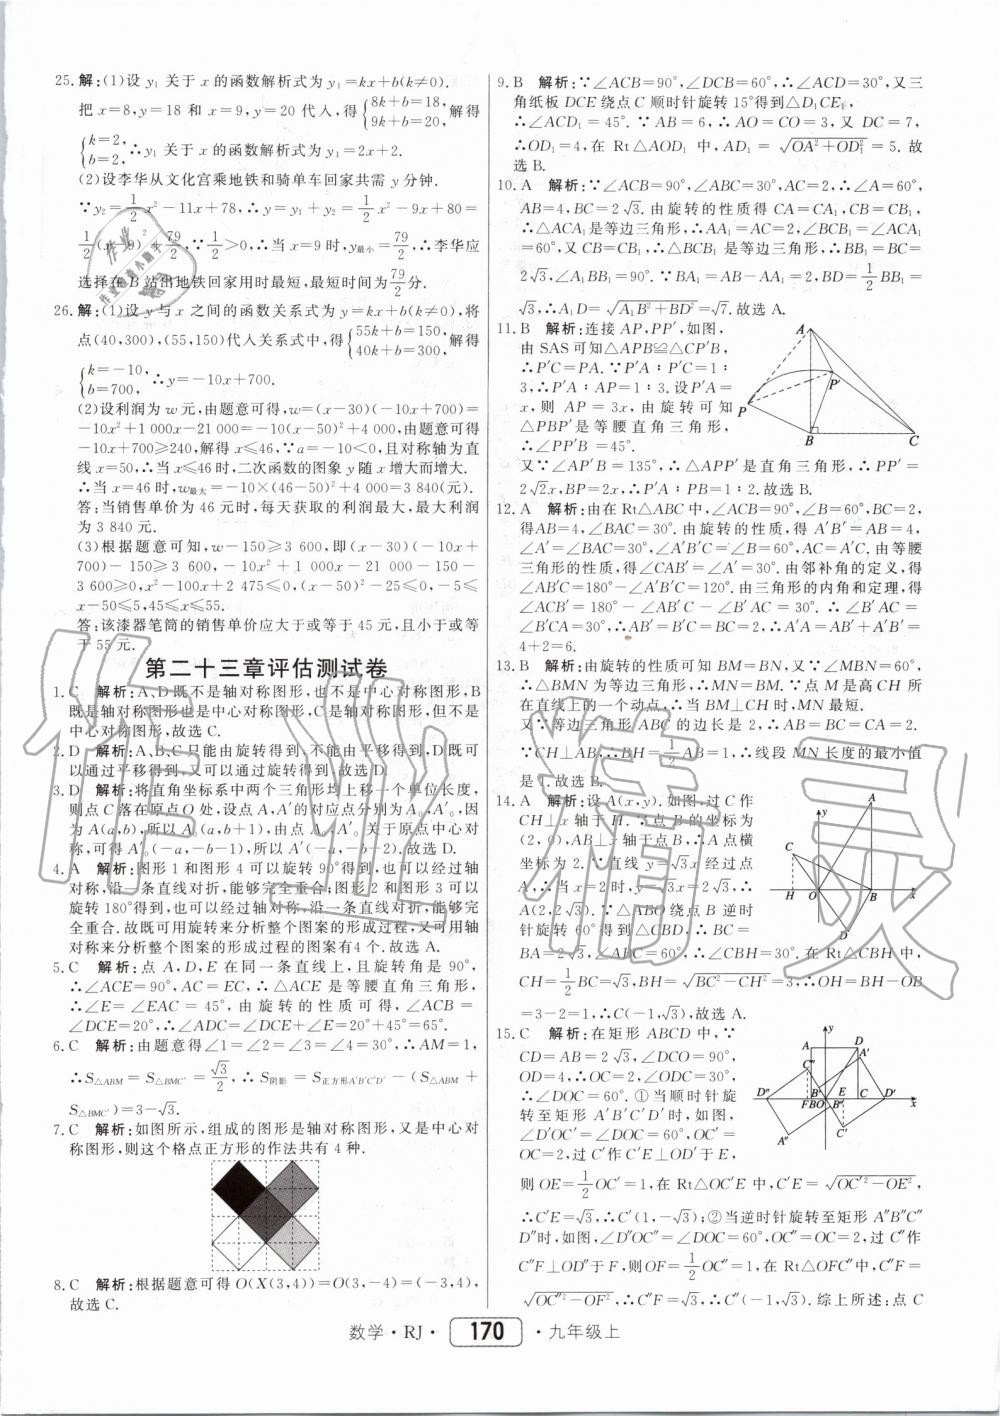 25. 解:(1)设 y₁ 关于 x 的函数解析式为 y₁=kx+b(k≠0).
把 x=8,y=18 和 x=9,y=20 代人,得{8k+b=18, 9k+b=20,解得
{k=2, b=2,∴y₁ 关于 x 的函数解析式为 y₁=2x+2.
(2)设李华从文化宫乘地铁和骑单车回家共需 y 分钟.
∵y₂=1/2x²-11x+78,∴y=y₁+y₂=1/2x²-9x+80=
1/2(x-9)²+79/2,∵1/2>0,∴当 x=9 时,y最小=79/2,∴李华应
选择在 B 站出地铁回家用时最短,最短时间为79/2分.
26. 解:(1)设 y 与 x 之间的函数关系式为 y=kx+b(k≠0),将
点(40,300),(55,150)代入关系式中,得{55k+b=150, 40k+b=300,解得
{k=-10, b=700,∴y=-10x+700.
(2)设利润为 w 元,由题意可得,w=(x-30)(-10x+700)=
-10x²+1 000x-21 000=-10(x-50)²+4 000,由题意可得
-10x+700≥240,解得 x≤46,∵a=-10<0,且对称轴为直
线 x=50,∴当 x≤46 时,二次函数的图象 y 随 x 增大而增大.
∴当 x=46 时,w最大=-10×(46-50)²+4 000=3 840(元).
答:当销售单价为 46 元时,每天获取的利润最大,最大利润
为 3 840 元.
(3)根据题意可知,w-150≥3 600,即(x-30)(-10x+
700)-150≥3 600,-10x²+1 000x-21 000-150-
3 600≥0,x²-100x+2 475≤0,(x-50)²-25≤0,-5≤
x-50≤5,45≤x≤55.
答:该漆器笔筒的销售单价应大于或等于 45 元,且小于或等
于 55 元.
第二十三章评估测试卷
1. C 解析:A,D 既不是轴对称图形,也不是中心对称图形,B
既是轴对称图形也是中心对称图形,C 是轴对称图形,但不是
中心对称图形.故选 C.
2. D 解析:A,B,C 只能由旋转得到,不能由平移得到,D 既可
以通过平移得到,又可以通过旋转得到.故选 D.
3. D 解析:将直角坐标系中两个三角形均上移一个单位长度,
则点 C 落在原点 O 处,设点 A,A′的对应点分别为 A₀,A′₀,因
为 A(a,b),所以 A₀(a,b+1),由点 A₀,A′₀ 关于原点中心对
称,可得 A′₀(-a,-b-1),所以 A′(-a,-b-2).故选 D.
4. A 解析:图形 1 和图形 4 可以旋转 90°得到,也可以经过轴
对称,沿一条直线对折,能够完全重合;图形 2 和图形 3 可以
旋转 180°得到,也可以经过轴对称,沿一条直线对折,能够完
全重合.故既可用旋转来分析整个图案的形成过程,又可用轴
对称来分析整个图案的形成过程的图案有4 个.故选 A.
5. C 解析:点 A,D,E 在同一条直线上,且旋转角是 90°,
∴∠ACE=90°,AC=EC,∴△ACE 是等腰直角三角形,
∴∠E=∠EAC=45°,由旋转的性质可得,∠ACB=
∠DCE=20°,∴∠ADC=∠DCE+∠E=20°+45°=65°.
6. C 解析:由题意得∠1=∠2=∠3=∠4=30°,∴AM=1,
∴S△ABM=S△BMC′=√3/2,∴S阴影=S正方形A′B′C′D′-(S△ABM+
S△BMC′)=3-√3.
7. C 解析:如图所示,组成的图形是轴对称图形,又是中心对
称图形,则这个格点正方形的作法共有 4 种.
8. C 解析:根据题意可得 O(X(3,4))=O(3,-4)=(-3,4),
故选 C.
9. B 解析:∵∠ACB=90°,∠DCB=60°,∴∠ACD=30°,又三
角纸板 DCE 绕点 C 顺时针旋转 15°得到△D₁CE₁,
∴∠ACD₁=45°.∵AB=6,∴AO=CO=3,又 DC=7,
∴OD₁=4,在 Rt△AOD₁ 中,AD₁=√(OA²+OD₁²)=5.故
选 B.
10. A 解析:∵∠ACB=90°,∠ABC=30°,AC=2,∴∠A=60°,
AB=4,BC=2√3.由旋转的性质得 CA=CA₁,CB=CB₁,
∴△ACA₁是等边三角形,∴AA₁=AC=2,∠BCB₁=∠ACA₁
=60°.又 CB=CB₁,∴△BCB₁ 是等边三角形,∴BB₁=BC=
2√3,∠A₁BB₁=90°.∵BA₁=AB-AA₁=2,BD=1/2BB₁=
√3,∴A₁D=√(A₁B²+BD²)=√7.故选 A.
11. B 解析:连接 AP,PP′,如图,
由 SAS 可知△APB≌△CP′B,
∴P′C=PA.∵P′A∶P′C=1∶
3,∴P′A∶AP=1∶3.设P′A=
x,则 AP=3x,由旋转可知
△PBP′是等腰直角三角形,
∴∠PP′B=45°.
又∵∠AP′B=135°,∴△APP′是直角三角形,∴PP′=
2√2x,BP=2x,∴P′A∶PB=1∶2.故选 B.
A
P′
P
B
C
12. A 解析:由在 Rt△ABC 中,∠ACB=90°,∠B=60°,BC=2,
得AB=4,∠BAC=30°.由旋转的性质,得 A′B′=AB=4,
∠A′=∠BAC=30°,∠A′B′C=∠B=60°,AC=A′C.由等腰
三角形的性质,得∠CAB′=∠A′=30°.由邻补角的定义,得
∠AB′C=180°-∠A′B′C=120°.由三角形的内角和定理,得
∠ACB′=180°-∠AB′C-∠B′AC=30°.∴∠B′AC=
∠B′CA=30°,∴AB′=B′C=BC=2,∴A′A=A′B′+AB′=
4+2=6.
13. B 解析:由旋转的性质可知 BM=BN,又∵∠MBN=60°,
∴△BMN为等边三角形,∴MN=BM.∵点 M 是高 CH 所
在直线上的一个动点,∴当 BM⊥CH 时,MN最短.
又∵等边三角形 ABC 的边长是 2,∴AB=BC=CA=2.
∵CH⊥AB,∴BH=1/2AB=1,∴线段 MN 长度的最小值
是 1.故选 B.
14. A 解析:设 A(x,y).如图,过 C 作
CH⊥x 轴于 H.∵点 B 的坐标为
(2,0),AB⊥x 轴于点 B,∴A 点横
坐标为 2.∵直线 y=√3x 经过点
A,∴当 x=2时,y=√3x=2√3,∴
A(2,2√3).∵△ABO 绕点 B 逆时
针旋转 60°得到△CBD,∴BC=
BA=2√3,∠ABC=60°,∴∠CBH=30°.在 Rt△CBH 中,
CH=1/2BC=√3,BH=√(BC²-CH²)=3,∴OH=BH-OB
=3-2=1,∴C(-1,√3).故选 A.
y
A
C
H
O
B
x
D
15. C 解析:在矩形 ABCD 中,∵
CD=AB=2√3,∠DCO=90°,
OD=4,∴OC=2,∴∠DOC=
60°.①当顺时针旋
转至矩形 A′B′C′D′时,如图,
∠D′OC′=∠DOC=60°,OC′=
OC=2,过 C′作 C′E⊥OD′于 E,
则 OE=1/2OC′=1,在 Rt△OC′E 中,C′E=√(OC′²-OE²),
∴C′E=√3,∴C′(1,-√3);②当逆时针旋转至矩形 A″B″C″
D″时,如图,∠D″OC″=∠DOC=60°,OC″=OC=2,过 C″作
C″F⊥OD″于 F,则OF=1/2OC″=1,在 Rt△OFC″中,C″F=
√(OC″²-OF²),∴C″F=√3,∴C″(-1,√3).综上所述:点 C
y
A
D
C″
A′
D″
B′
E
F
B
O
B″
C
D′
x
A″
C′
数学·RJ· 170 ·九年级上
作业精灵